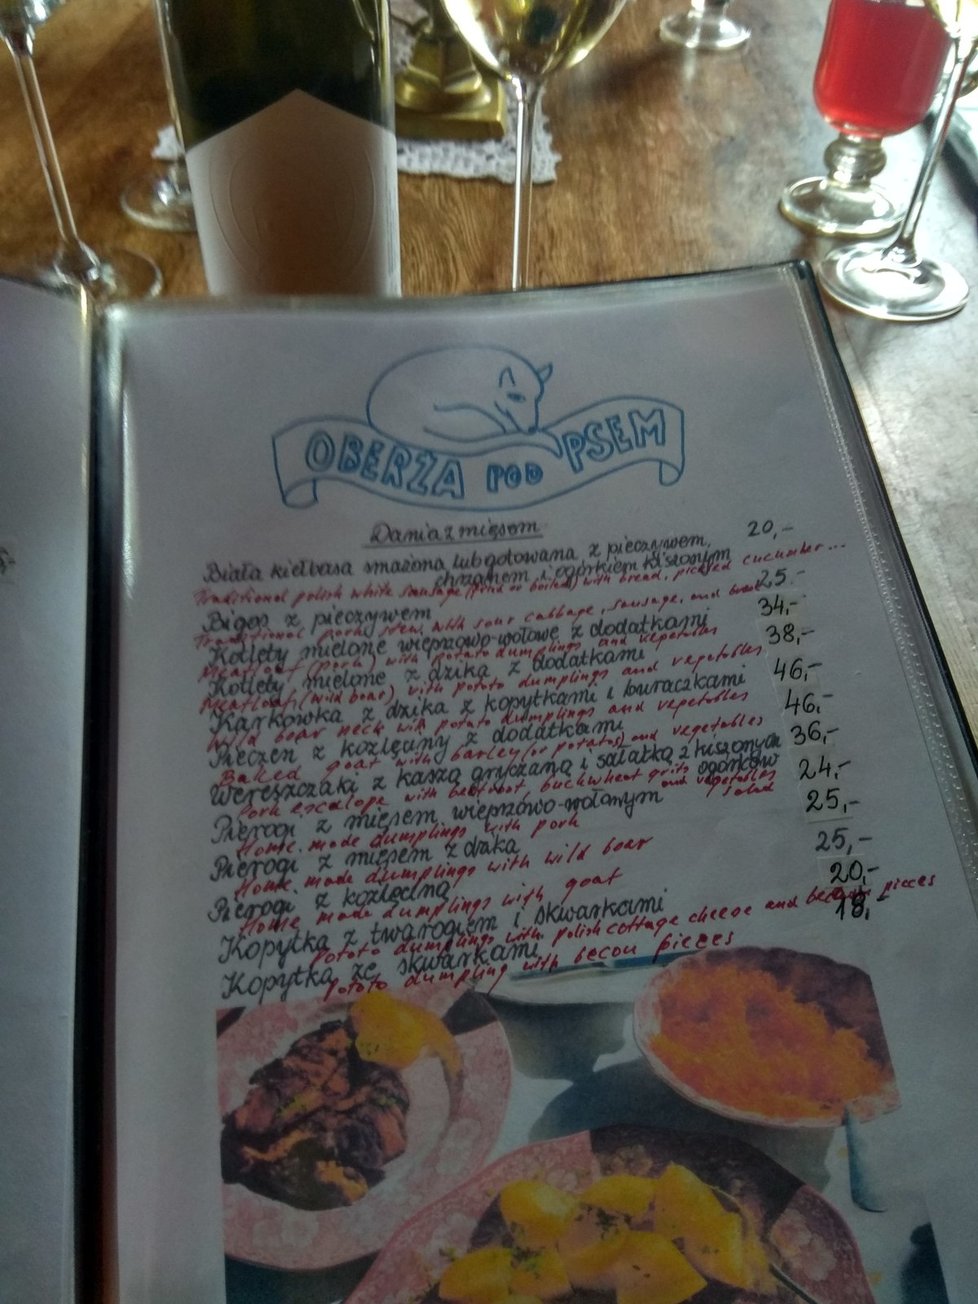 OBERŻA POD PSEM
Dania z mięsem
Biała kiełbasa smażona lub gotowana z pieczywem, 20,-
chrzanem i ogórkiem kiszonym
Traditional polish white sausage (fried or boiled) with bread, pickled cucumber...
Bigos z pieczywem 25.-
Traditional pork stew with sour cabbage, sausage, and bread
Kotlety mielone wieprzowo-wołowe z dodatkami 34,-
Meatloaf (pork) with potato dumplings and vegetables
Kotlety mielone z dzika z dodatkami 38,-
Meatloaf (wild boar) with potato dumplings and vegetables
Karkówka z dzika z kopytkami i buraczkami 46,-
Wild boar neck with potato dumplings and vegetables
Pieczeń z koźlęciny z dodatkami 46,-
Baked goat with barley (or potatos) and vegetables
Wereszczaki z kaszą gryczaną i sałatką z kiszonych 36,-
ogórków
Pork escalope with beetroot, buckwheat grits and vegetables
salad
Pierogi z mięsem wieprzowo-wołowym 24,-
Home made dumplings with pork
Pierogi z mięsem z dzika 25,-
Home made dumplings with wild boar
Pierogi z koźlęciną 25,-
Home made dumplings with goat
Kopytka z twarogiem i skwarkami 20,-
Potato dumplings with polish cottage cheese and becon pieces
Kopytka ze skwarkami 18,-
Potato dumpling with becon pieces